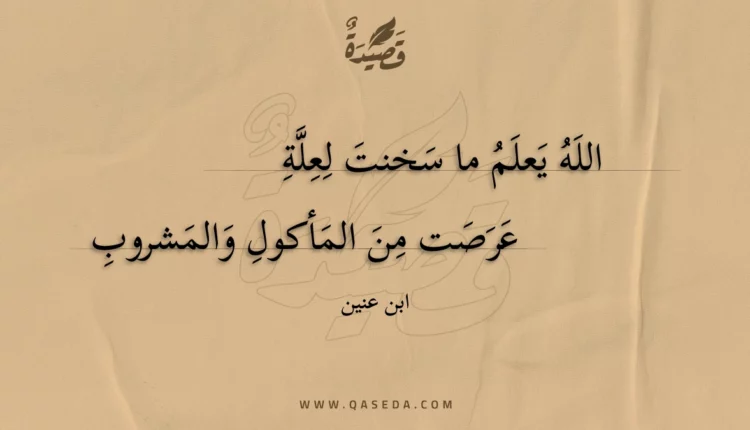 قَصِيدَةٌ
اللَهُ يَعلَمُ ما سَخنتَ لِعِلَّةِ
عَرَضَت مِنَ المَأكولِ وَالمَشروبِ
ابن عنين
WWW.QASEDA.COM